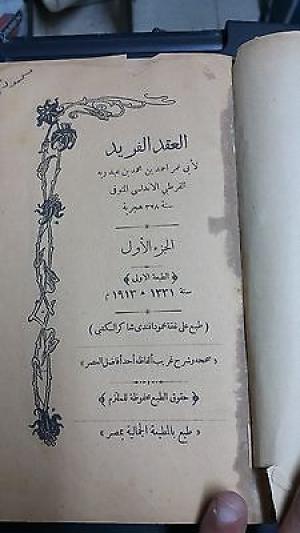 العقد الفريد
لأبي عمر احمد بن محمد بن عبد ربه
القرطبي الاندلسي المتوفى
سنة ٣٢٨ هجرية
الجزء الأول
﴿ الطبعة الاولى ﴾
سنة ١٣٣١ ه ١٩١٣ م
( طبع على نفقة محمود افندي شاكر الكتبي )
« صححه وشرح غريب ألفاظه أحد أفاضل العصر »
﴿ حقوق الطبع محفوظة للملتزم ﴾
« طبع بالمطبعة الجمالية بمصر »